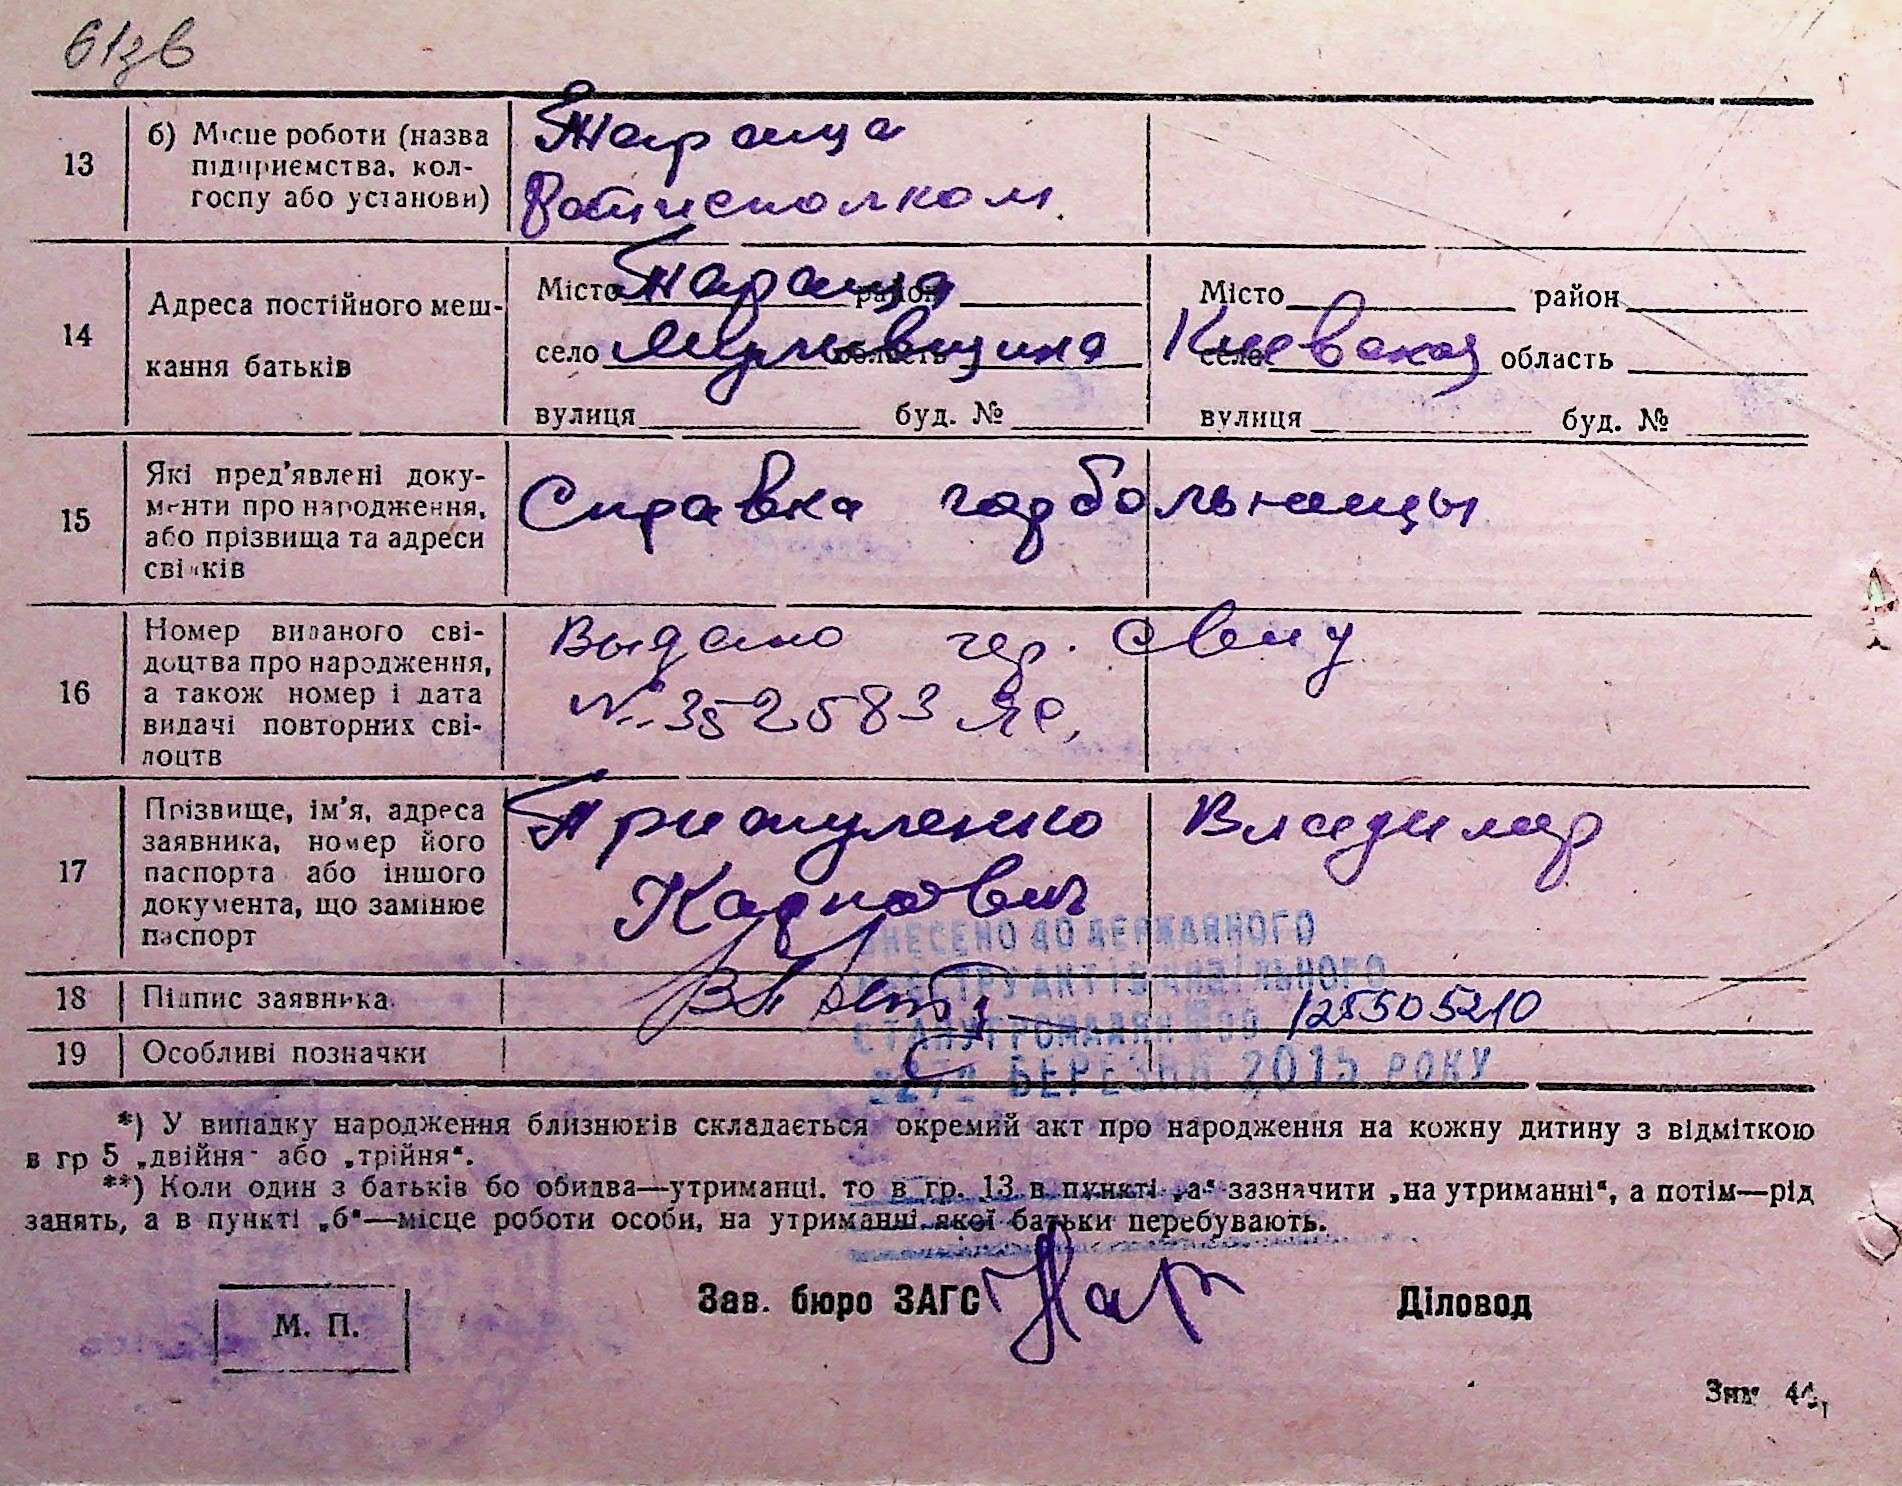 61зв
13
б) Місце роботи (назва
підприємства, кол-
госпу або установи)
Тараща
Райисполком.
14
Адреса постійного меш-
кання батьків
Місто Тараща район
село область
вулиця буд. №
Місто район
село Киевская область
вулиця буд. №
15
Які пред'явлені доку-
менти про народження,
або прізвища та адреси
свідків
Справка горбольницы
16
Номер виданого сві-
доцтва про народження,
а також номер і дата
видачі повторних сві-
доцтв
Выдано гер. свид
№ 352583
17
Прізвище, ім'я, адреса
заявника, номер його
паспорта або іншого
документа, що замінює
паспорт
Владимир
Карпович
ВНЕСЕНО ДО ДЕРЖАВНОГО
РЕЄСТРУ АКТІВ ЦИВІЛЬНОГО
СТАНУ ГРОМАДЯН
БЕРЕЗНЯ 2015 РОКУ
18
Підпис заявника
125505210
19
Особливі позначки
*) У випадку народження близнюків складається окремий акт про народження на кожну дитину з відміткою
в гр 5 „двійня" або „трійня".
**) Коли один з батьків бо обидва—утриманці. то в гр. 13 в пункті „а" зазначити „на утриманні", а потім—рід
занять, а в пункті „б"—місце роботи особи, на утриманні якої батьки перебувають.
М. П.
Зав. бюро ЗАГС
Діловод